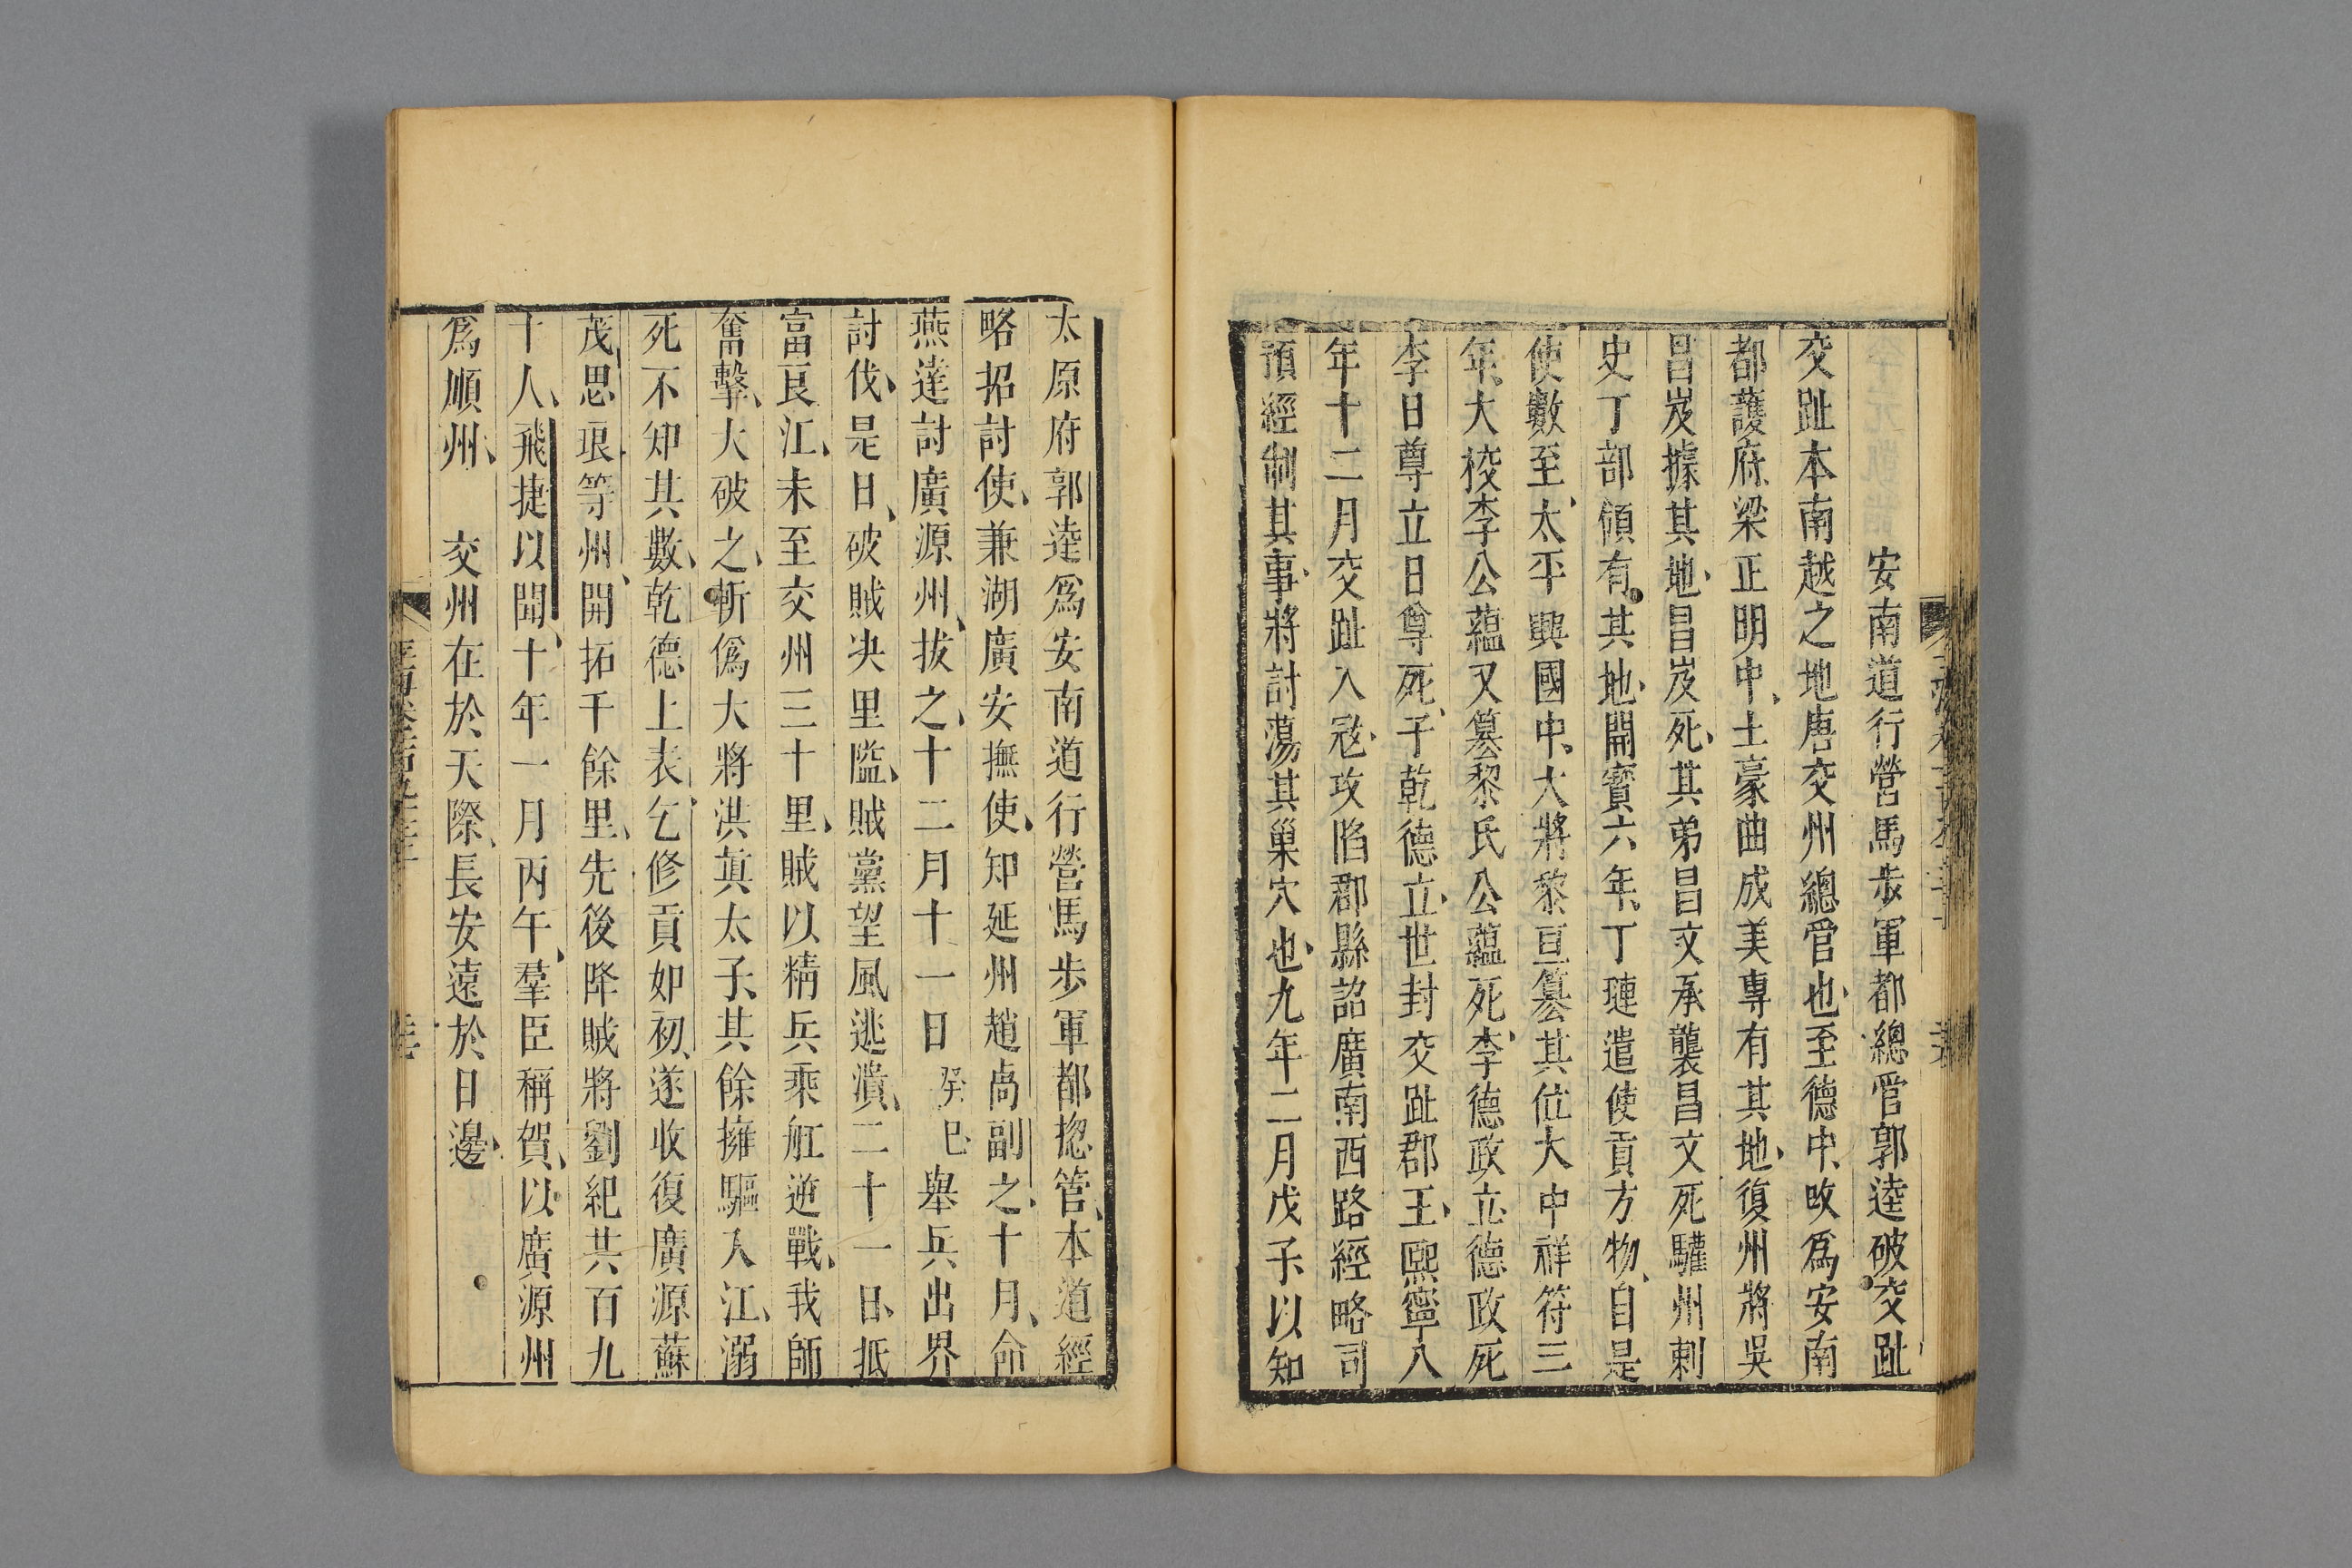 安南道行營馬歩軍都總管郭逵破交趾
交趾本南越之地唐交州總管也至德中改爲安南
都護府梁正明中土豪曲成美專有其地復州將吳
昌岌據其地昌岌死其弟昌文承襲昌文死驩州刺
史丁部領有其地開寳六年丁璉遣使貢方物自是
使數至太平興國中大將黎亘簒其位大中祥符三
年大校李公蘊又簒黎氏公蘊死李德政立德政死
李日尊立日尊死子乾德立世封交趾郡王熈寧八
年十二月交趾入宼攻陷郡縣詔廣南西路經略司
預經制其事將討蕩其巢穴也九年二月戊子以知
太原府郭逵爲安南道行營馬歩軍都捴管本道經
略招討使兼湖廣安撫使知延州趙卨副之十月命
燕逹討廣源州拔之十二月十一日癸巳舉兵出界
討伐是日破賊决里隘賊黨望風逃潰二十一日抵
富良江未至交州三十里賊以精兵乘舡逆戰我師
奮擊大破之斬僞大將洪眞太子其餘擁驅入江溺
死不知其數乾德上表乞修貢如初遂收復廣源蘇
茂思琅等州開拓千餘里先後降賊將劉紀共百九
十人飛捷以聞十年一月丙午羣臣稱賀以廣源州
爲順州　交州在於天際長安遠於日邊